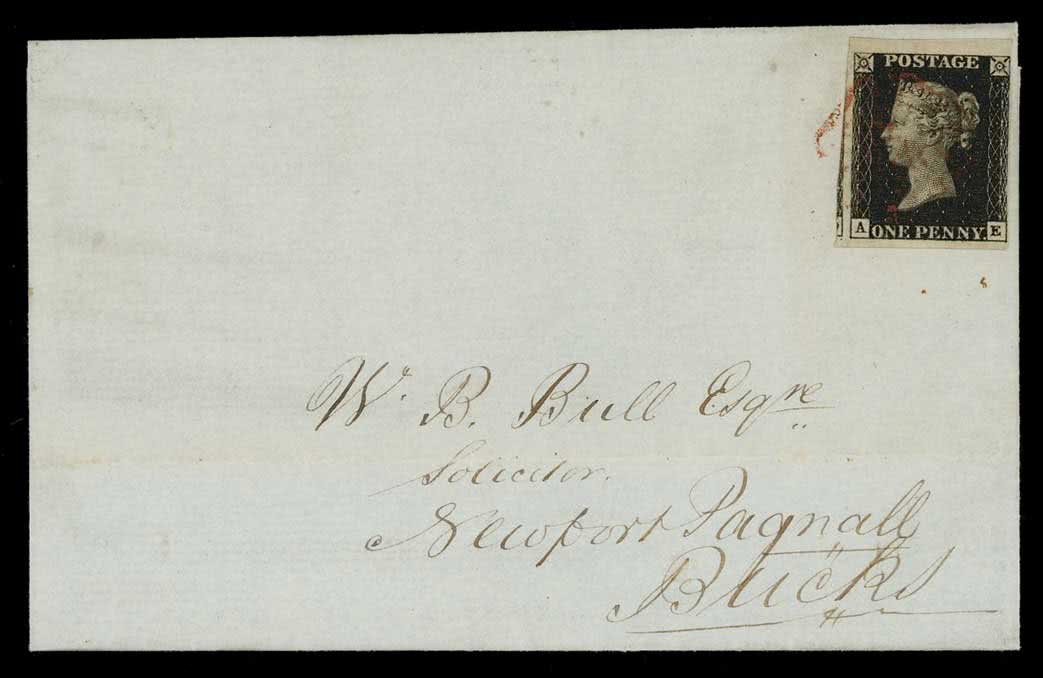 POSTAGE
A ONE PENNY. E
W. B. Bull Esqre
Solicitor.
Newport Pagnall
Bucks